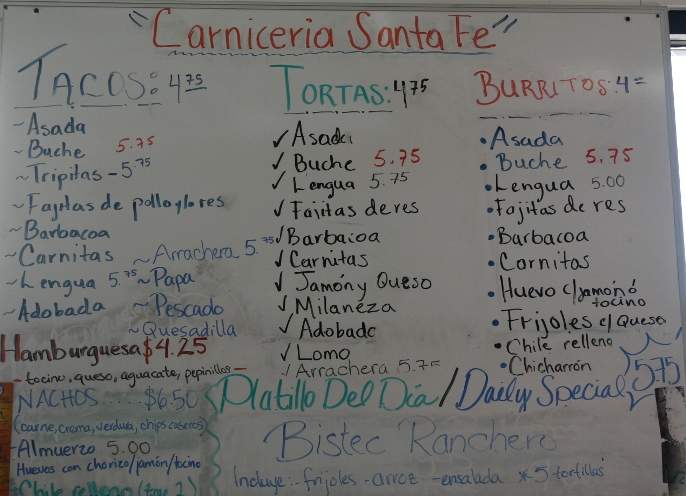 "Carniceria Santa Fe"
TACOS: 4 75
~Asada
~Buche 5.75
~Tripitas - 5.75
~Fajitas de pollo y/o res
~Barbacoa
~Carnitas
~Lengua 5.75
~Adobada
~Arrachera 5.75
~Papa
~Pescado
~Quesadilla
Hamburguesa $4.25
- tocino, queso, aguacate, pepinillos -
NACHOS..... $6.50
(carne, crema, verdura, chips caseros)
-Almuerzo 5.00
Huevos con chorizo/jamón/tocino
Chile relleno (tray 2)
TORTAS: 4 75
✓ Asada
✓ Buche 5.75
✓ Lengua 5.75
✓ Fajitas de res
✓ Barbacoa
✓ Carnitas
✓ Jamón y Queso
✓ Milaneza
✓ Adobado
✓ Lomo
✓ Arrachera 5.75
BURRITOS: 4=
•Asada
•Buche 5.75
•Lengua 5.00
•Fajitas de res
•Barbacoa
•Carnitas
•Huevo c/jamon ó
tocino
•Frijoles c/ Queso
•Chile relleno
•Chicharrón
Platillo Del Dia / Daily Special 5.75
Bistec Ranchero
Incluye:- frijoles - arroz - ensalada * 5 tortillas